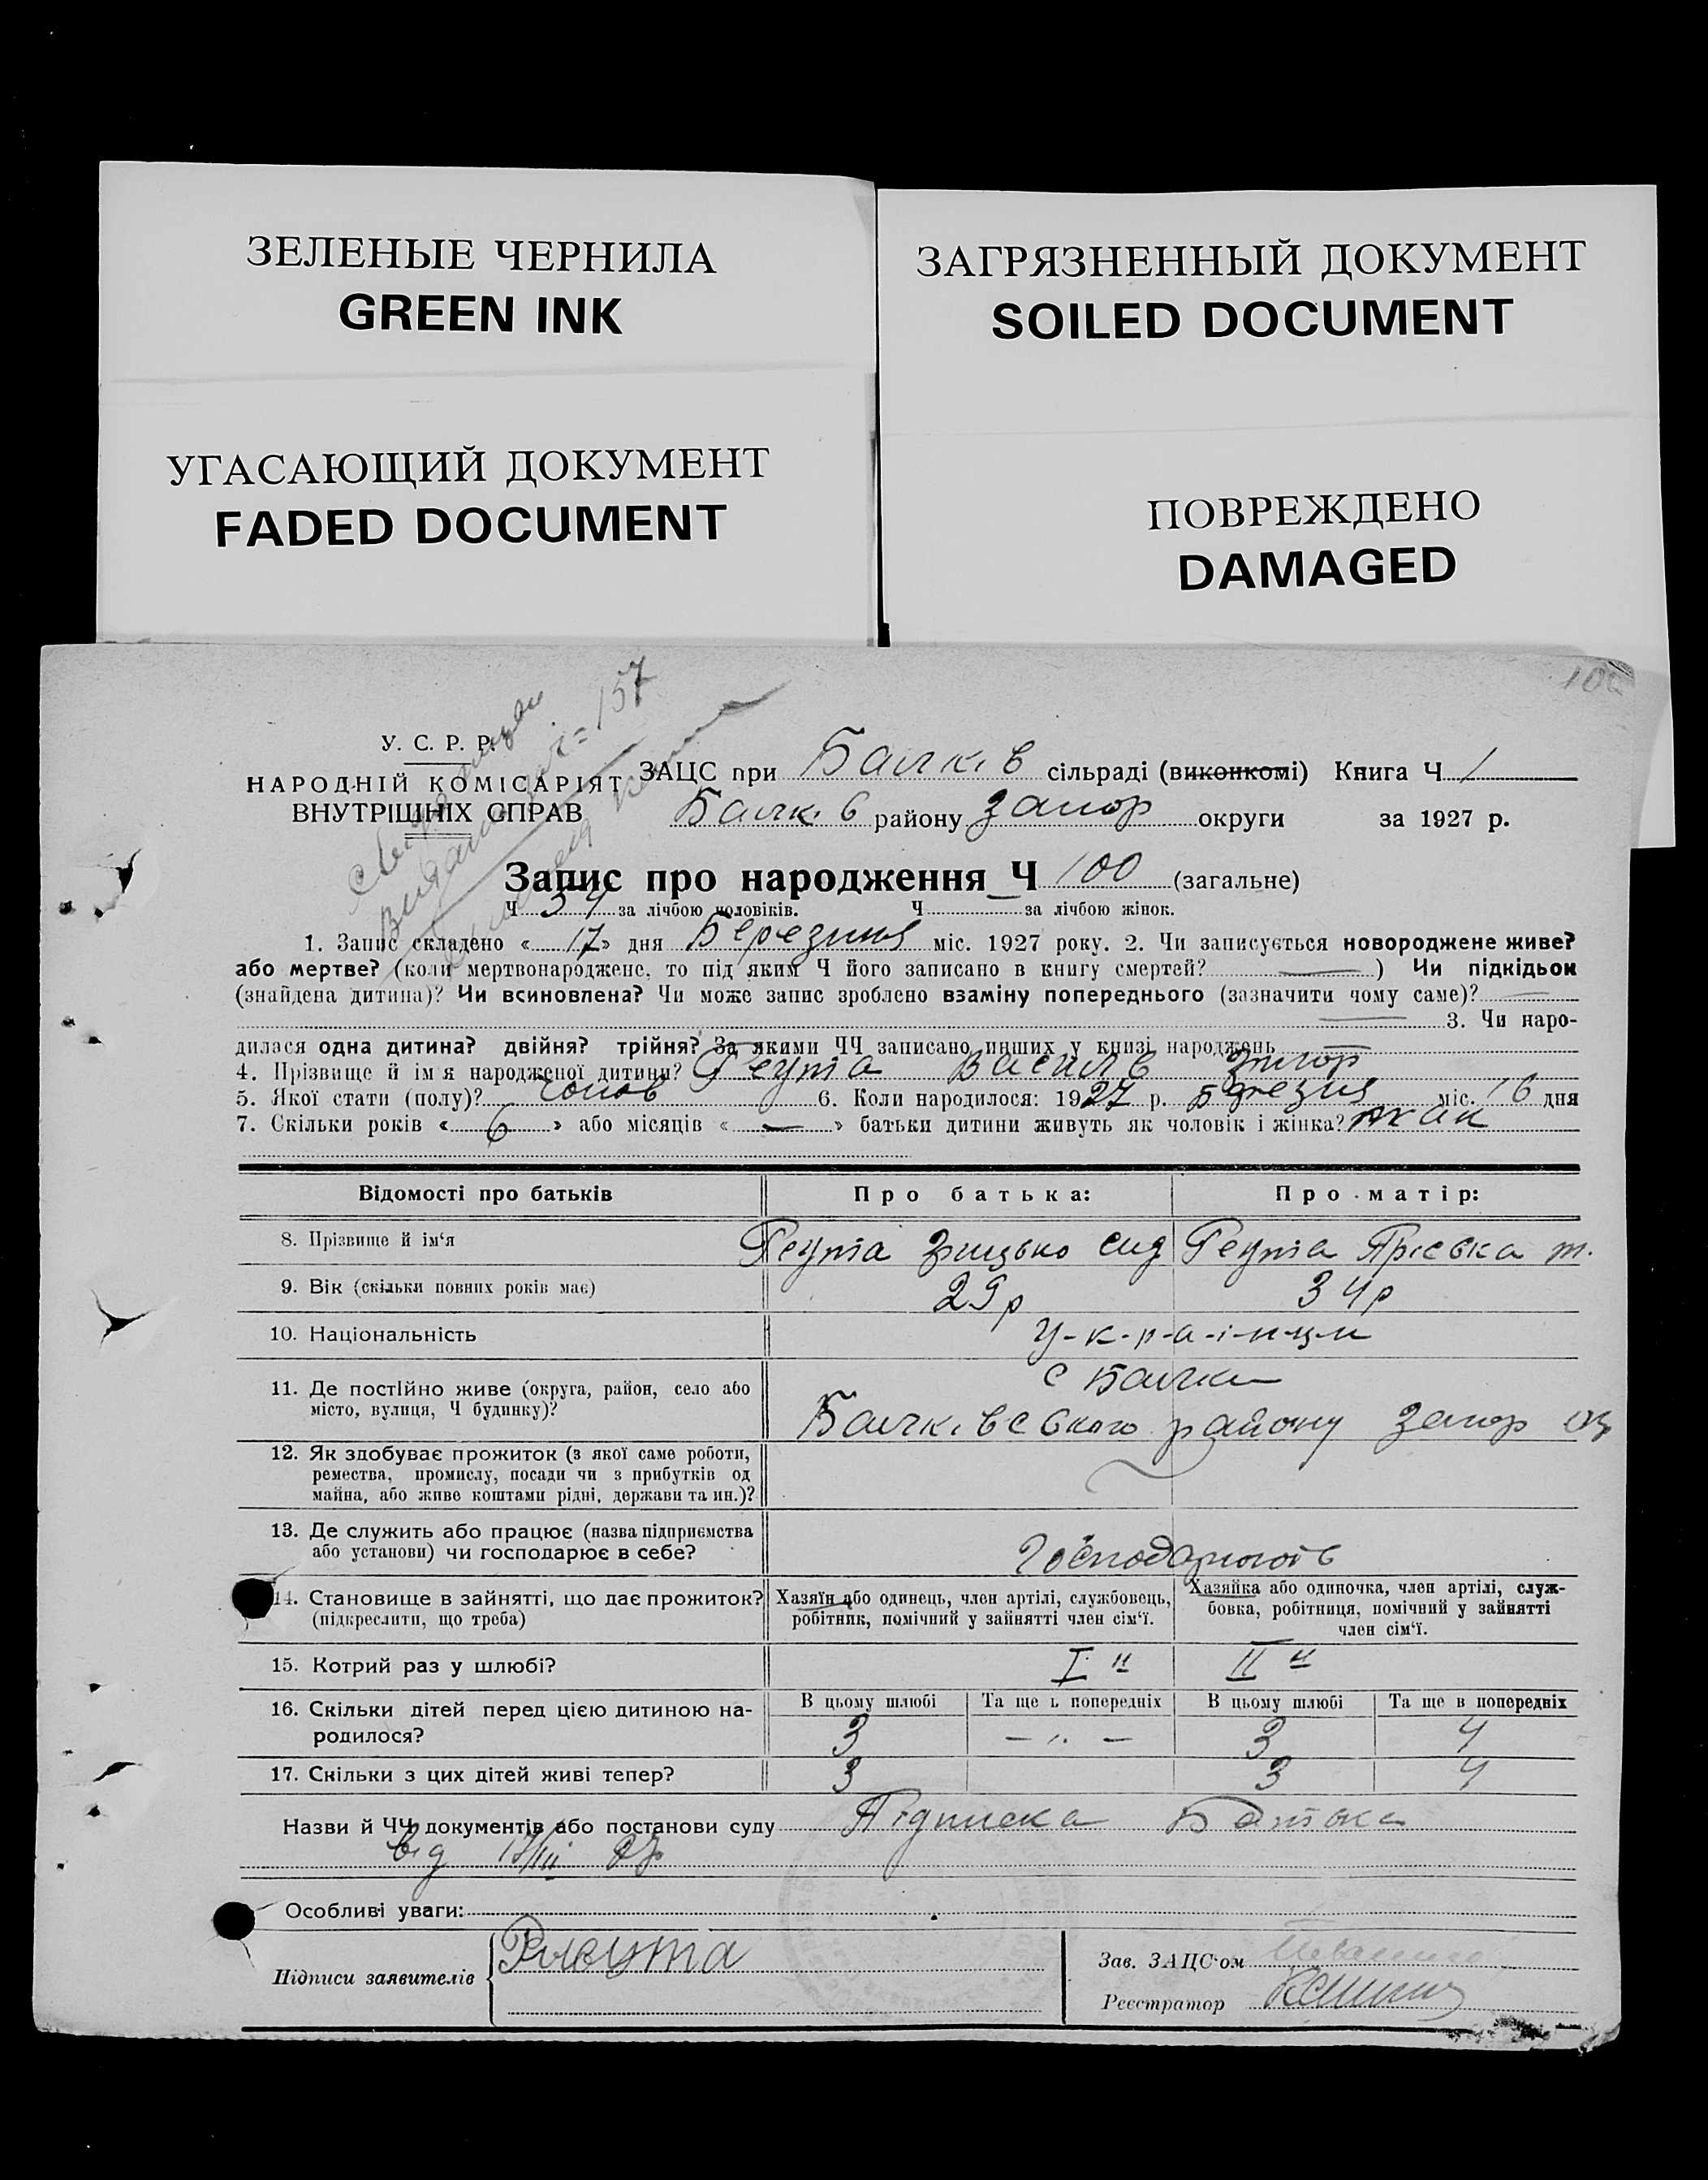 ЗЕЛЕНЫЕ ЧЕРНИЛА
GREEN INK
УГАСАЮЩИЙ ДОКУМЕНТ
FADED DOCUMENT
ЗАГРЯЗНЕННЫЙ ДОКУМЕНТ
SOILED DOCUMENT
ПОВРЕЖДЕНО
DAMAGED
= 157
У. С. Р. Р.
НАРОДНІЙ КОМІСАРІЯТ
ВНУТРІШНІХ СПРАВ
ЗАЦС при Балків сільраді (виконкомі) Книга Ч 1
Балків району Запор округи за 1927 р.
Запис про народження Ч 100 (загальне)
Ч 54 за лічбою чоловіків. Ч за лічбою жінок.
1. Запис складено « 17 » дня Березня міс. 1927 року. 2. Чи записується новороджене живе?
або мертве? (коли мертвонароджене, то під яким Ч його записано в книгу смертей? —) Чи підкідьок
(знайдена дитина)? Чи всиновлена? Чи може запис зроблено взаміну попереднього (зазначити чому саме)? —
— 3. Чи наро-
дилася одна дитина? двійня? трійня? За якими ЧЧ записано инших у книзі народжень —
4. Прізвище й ім'я народженої дитини? Реута Василь
5. Якої стати (полу)? чолов 6. Коли народилося: 1927 р. Березня міс. 16 дня
7. Скільки років « 6 » або місяців « — » батьки дитини живуть як чоловік і жінка?
Відомості про батьків Про батька: Про матір:
8. Прізвище й ім'я Реута Грицько Сид Реута Пріська т.
9. Вік (скільки повних років має) 29 р 34 р
10. Національність У-к-р-а-і-н-ц-и
11. Де постійно живе (округа, район, село або
місто, вулиця, Ч будинку)? с Балки
Балківського району Запор окр
12. Як здобуває прожиток (з якої саме роботи,
ремества, промислу, посади чи з прибутків од
майна, або живе коштами рідні, держави та ин.)?
13. Де служить або працює (назва підприємства
або установи) чи господарює в себе? Господарюють
14. Становище в зайнятті, що дає прожиток?
(підкреслити, що треба)
Хазяїн або одинець, член артілі, службовець,
робітник, помічний у зайнятті член сім'ї.
Хазяйка або одиночка, член артілі, служ-
бовка, робітниця, помічний у зайнятті
член сім'ї.
15. Котрий раз у шлюбі? I й II й
16. Скільки дітей перед цією дитиною на-
родилося?
В цьому шлюбі Та ще в попередніх В цьому шлюбі Та ще в попередніх
3 — „ — 3 4
17. Скільки з цих дітей живі тепер? 3 3 4
Назви й ЧЧ документів або постанови суду Підписка Батька
від 17/III 27р
Особливі уваги:
Підписи заявителів
Зав. ЗАЦС'ом
Реєстратор